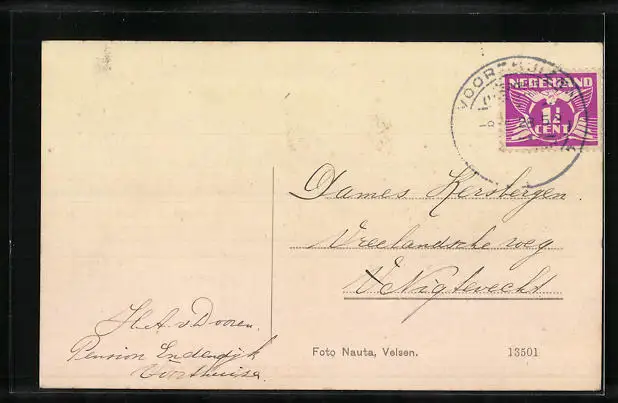 VOORTHUIZEN
NEDERLAND
1½
CENT
Dames Kersbergen.
Vreelandsche weg
Nigtevecht
H.A. v Dooren.
Pension Endendijk
Voorthuizen.
Foto Nauta, Velsen.
13501